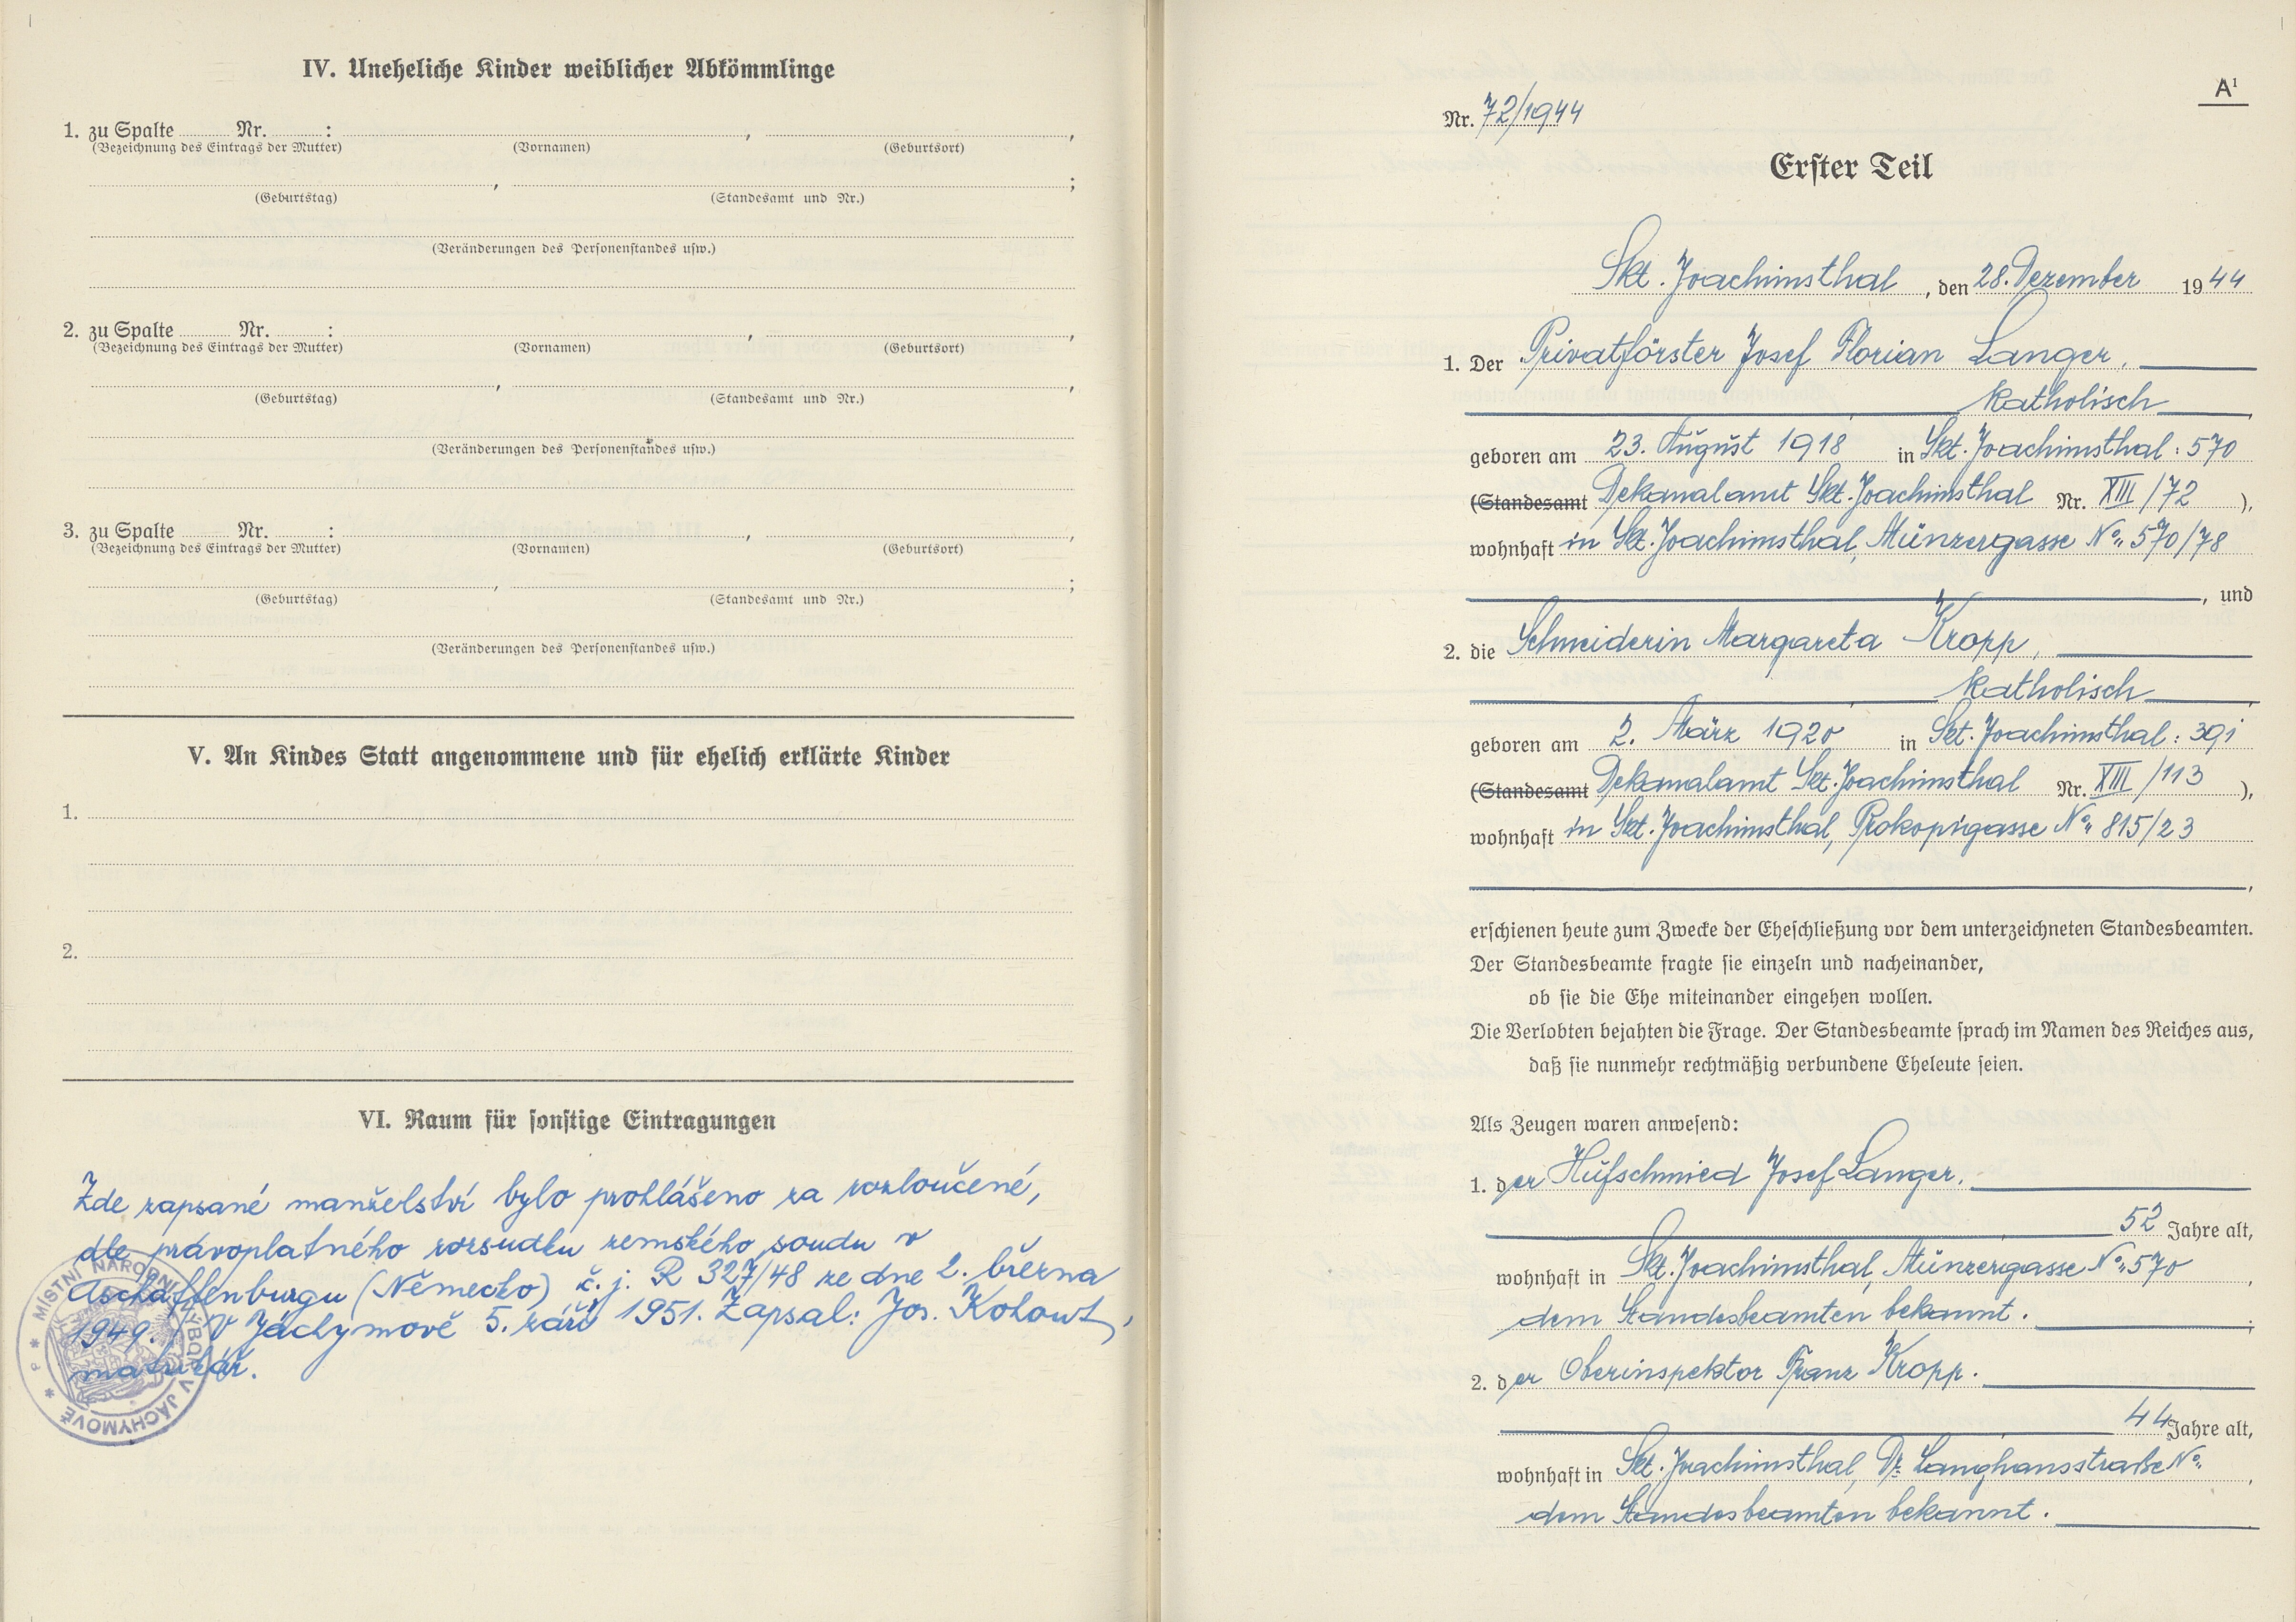 IV. Uneheliche Kinder weiblicher Abkömmlinge
1. zu Spalte Nr. : , ,
(Bezeichnung des Eintrags der Mutter) (Vornamen) (Geburtsort)
, ;
(Geburtstag) (Standesamt und Nr.)
(Veränderungen des Personenstandes usw.)
2. zu Spalte Nr. : , ,
(Bezeichnung des Eintrags der Mutter) (Vornamen) (Geburtsort)
, ,
(Geburtstag) (Standesamt und Nr.)
(Veränderungen des Personenstandes usw.)
3. zu Spalte Nr. : , ,
(Bezeichnung des Eintrags der Mutter) (Vornamen) (Geburtsort)
, ;
(Geburtstag) (Standesamt und Nr.)
(Veränderungen des Personenstandes usw.)
V. An Kindes Statt angenommene und für ehelich erklärte Kinder
1.
2.
VI. Raum für sonstige Eintragungen
Zde zapsané manželství bylo prohlášeno za rozloučené,
dle právoplatného rozsudku zemského soudu v
Aschaffenburgu (Německo) č. j. R 327/48 ze dne 2. března
1949. V Jáchymově 5. září 1951. Zapsal: Jos. Kohout,
matrikář.
MÍSTNÍ NÁRODNÍ VÝBOR V JÁCHYMOVĚ
A¹
Nr. 72/1944
Erster Teil
Skt. Joachimsthal, den 28. Dezember 1944
1. Der Privatförster Josef Florian Langer,
katholisch,
geboren am 23. August 1918 in Skt. Joachimsthal : 570
(Standesamt Dekanalamt Skt. Joachimsthal Nr. XIII/72 ),
wohnhaft in Skt. Joachimsthal, Münzergasse No. 570/78
, und
2. die Schneiderin Margareta Kropp,
katholisch,
geboren am 2. März 1920 in Skt. Joachimsthal : 391
(Standesamt Dekanalamt Skt. Joachimsthal Nr. XIII/113 ),
wohnhaft in Skt. Joachimsthal, Prokopigasse No. 815/23
,
erschienen heute zum Zwecke der Eheschließung vor dem unterzeichneten Standesbeamten.
Der Standesbeamte fragte sie einzeln und nacheinander,
ob sie die Ehe miteinander eingehen wollen.
Die Verlobten bejahten die Frage. Der Standesbeamte sprach im Namen des Reiches aus,
daß sie nunmehr rechtmäßig verbundene Eheleute seien.
Als Zeugen waren anwesend:
1. der Hufschmied Josef Langer.
52 Jahre alt,
wohnhaft in Skt. Joachimsthal, Münzergasse No. 570,
dem Standesbeamten bekannt. ;
2. der Oberinspektor Franz Kropp.
44 Jahre alt,
wohnhaft in Skt. Joachimsthal, Dr. Langhansstraße No. ,
dem Standesbeamten bekannt.